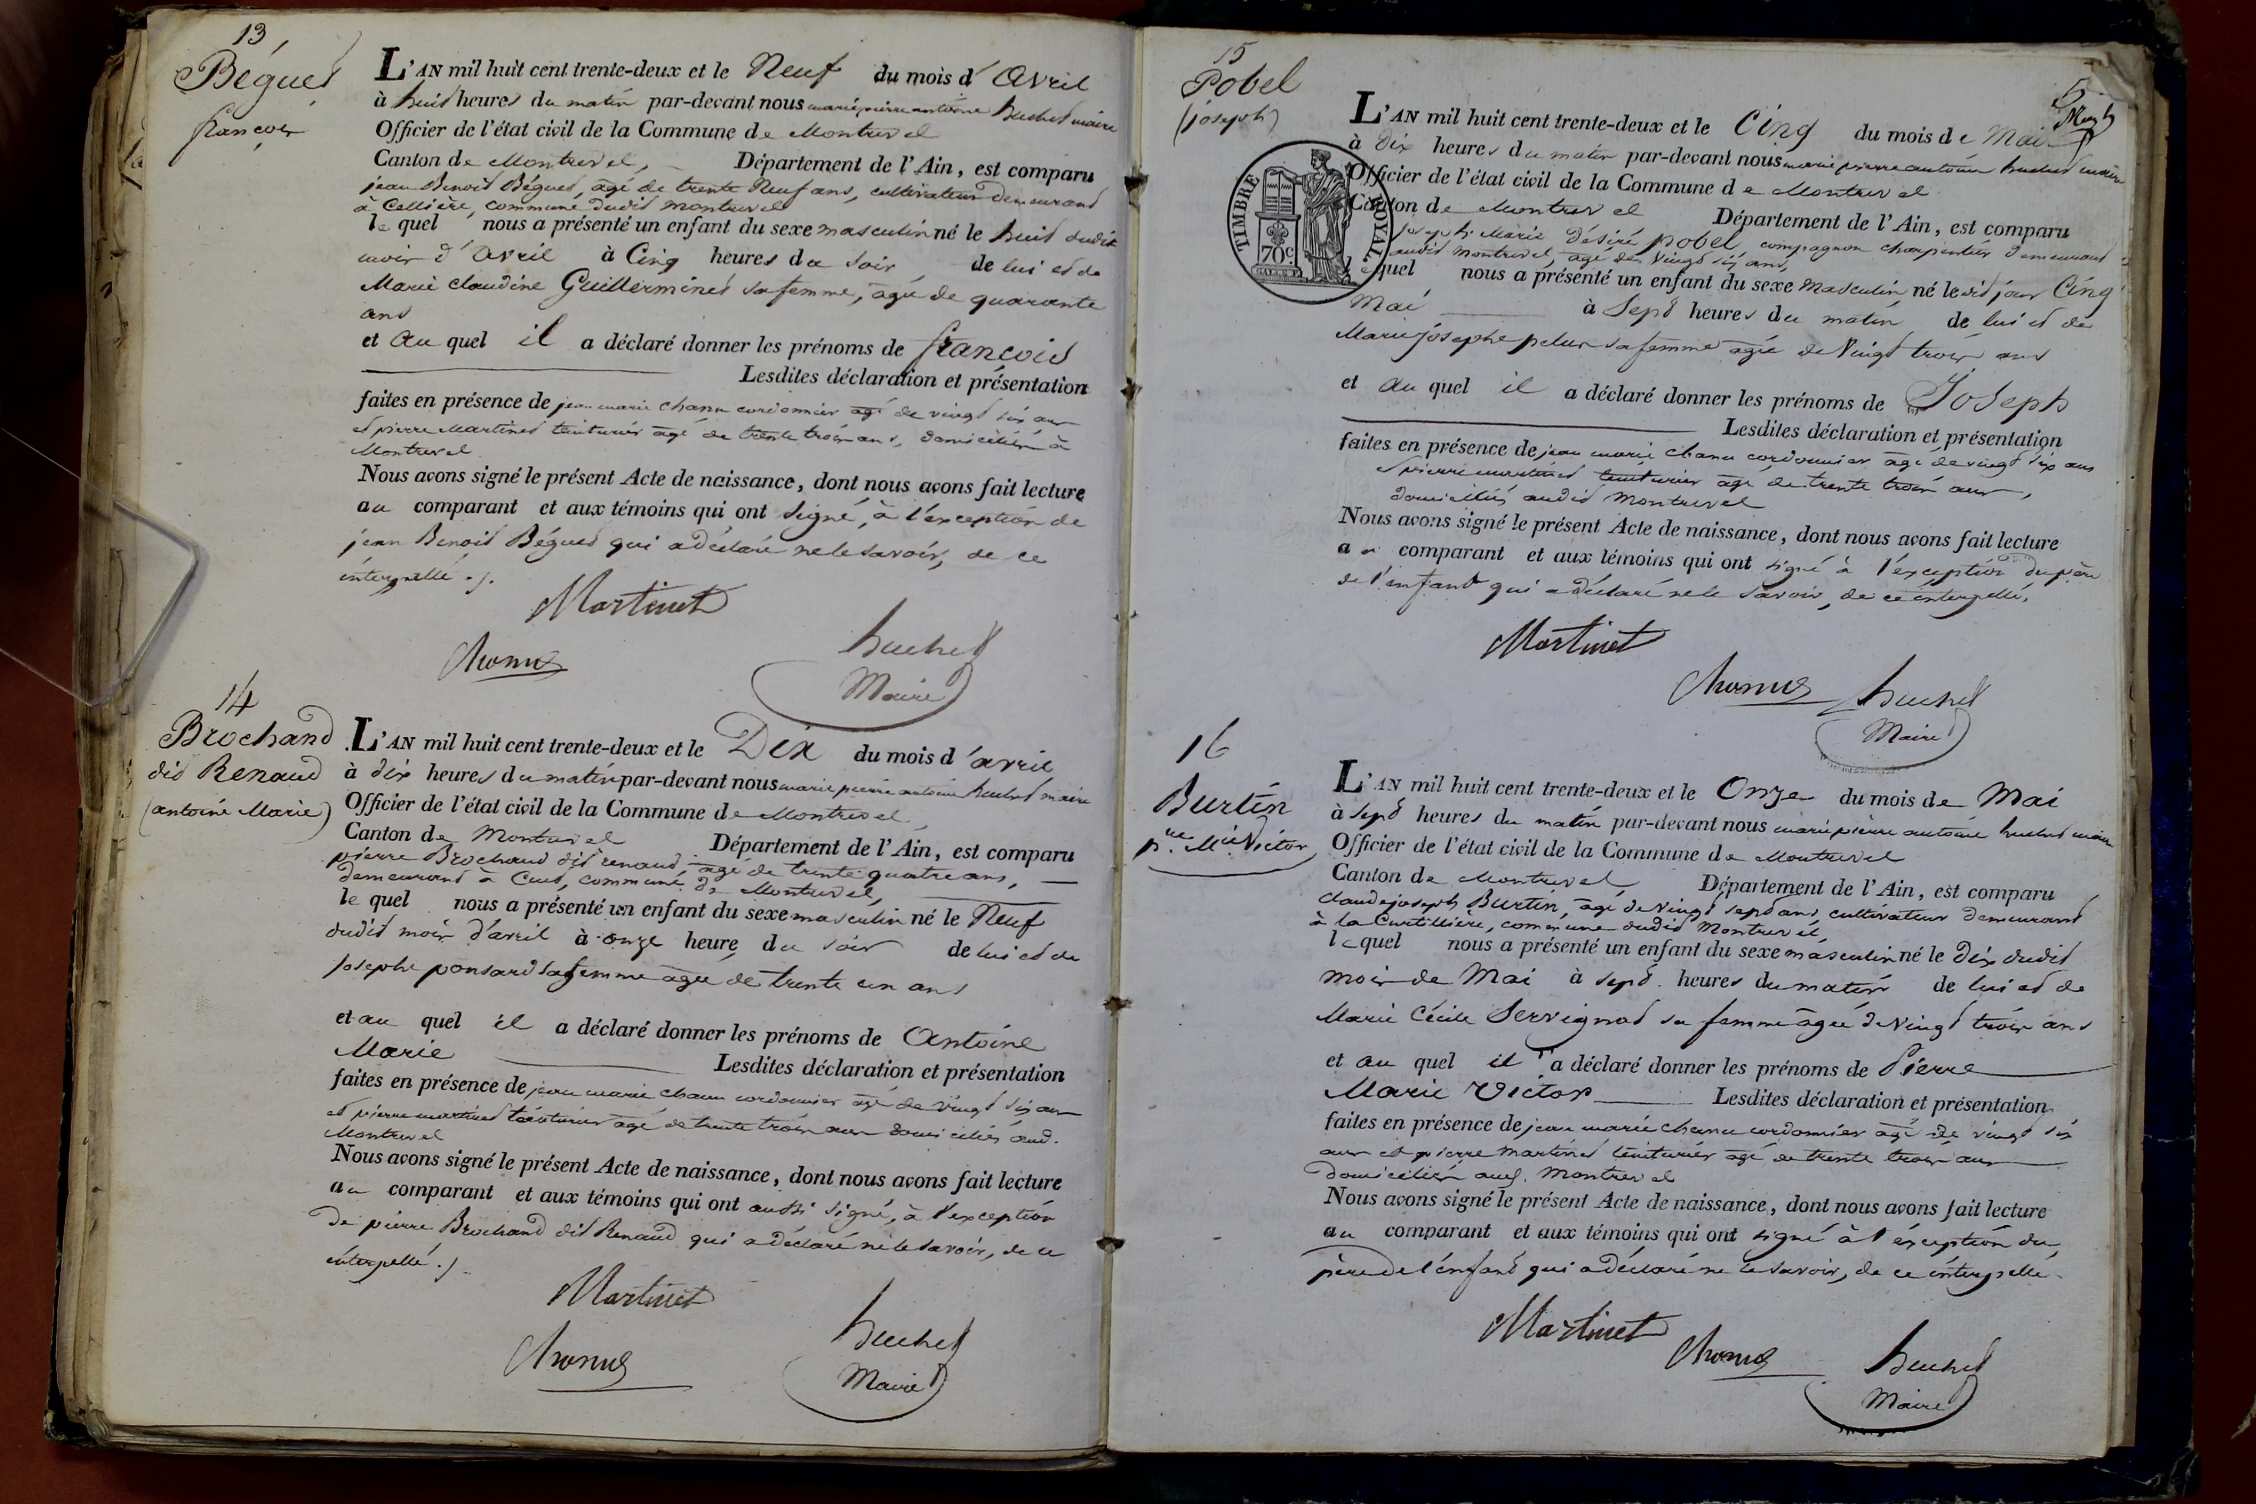 13
Béguet
françois
L'AN mil huit cent trente-deux et le Neuf du mois d'avril
à huit heures du matin par-devant nous marie pierre antoine huchet maire
Officier de l'état civil de la Commune de Montrevel
Canton de Montrevel, Département de l'Ain, est comparu
jean Benoit Béguet, âgé de trente Neuf ans, cultivateur demeurant
à Cellière, commune dudit montrevel
lequel nous a présenté un enfant du sexe masculin né le huit dudit
mois d'avril à Cinq heures du soir de lui et de
Marie claudine Guillerminet sa femme, agée de quarante
ans
et au quel il a déclaré donner les prénoms de françois
Lesdites déclaration et présentation
faites en présence de jean marie chanu cordonnier agé de vingt six ans
et pierre Martinet teinturier agé de trente trois ans, domiciliés à
Montrevel
Nous avons signé le présent Acte de naissance, dont nous avons fait lecture
au comparant et aux témoins qui ont signé, à l'exception de
jean Benoit Béguet qui a déclaré ne le savoir, de ce
interpellé ./.
Martinet
Chanu
huchet
Maire
14
Brochand
dit Renaud
(antoine Marie)
L'AN mil huit cent trente-deux et le Dix du mois d'avril
à dix heures du matin par-devant nous marie pierre antoine huchet maire
Officier de l'état civil de la Commune de Montrevel
Canton de Montrevel Département de l'Ain, est comparu
pierre Brochand dit renaud, âgé de trente quatre ans,
demeurant à Cuet, commune de Montrevel,
lequel nous a présenté un enfant du sexe masculin né le Neuf
dudit mois d'avril à onze heure du soir de lui et de
Josephe ponsard sa femme agée de trente un ans
et au quel il a déclaré donner les prénoms de Antoine
Marie Lesdites déclaration et présentation
faites en présence de jean marie chanu cordonnier agé de vingt six ans
et pierre martinet teinturier agé de trente trois ans domiciliés aud.
Montrevel
Nous avons signé le présent Acte de naissance, dont nous avons fait lecture
au comparant et aux témoins qui ont aussi signé, à l'exception
de pierre Brochand dit Renaud qui a déclaré ne le savoir, de ce
interpellé ./.
Martinet
Chanu
huchet
Maire
15
Pobel
(joseph)
5
TIMBRE ROYAL
70c
L'AN mil huit cent trente-deux et le Cinq du mois de Mai
à dix heures du matin par-devant nous marie pierre antoine huchet maire
Officier de l'état civil de la Commune de Montrevel
Canton de Montrevel Département de l'Ain, est comparu
joseph Marie désiré pobel, compagnon charpentier demeurant
audit montrevel, agé de vingt six ans,
lequel nous a présenté un enfant du sexe masculin né ledit jour Cinq
Mai à Sept heures du matin de lui et de
Marie josephe pelus sa femme agée de Vingt trois ans
et au quel il a déclaré donner les prénoms de Joseph
Lesdites déclaration et présentation
faites en présence de jean marie chanu cordonnier agé de vingt six ans
et pierre martinet teinturier agé de trente trois ans,
domiciliés audit Montrevel
Nous avons signé le présent Acte de naissance, dont nous avons fait lecture
au comparant et aux témoins qui ont signé à l'exception du père
de l'enfant qui a déclaré ne le savoir, de ce interpellé.
Martinet
Chanu
huchet
Maire
16
Burtin
p.re M.ie Victor
L'AN mil huit cent trente-deux et le Onze du mois de Mai
à sept heures du matin par-devant nous marie pierre antoine huchet maire
Officier de l'état civil de la Commune de Montrevel
Canton de Montrevel, Département de l'Ain, est comparu
Claude joseph Burtin, agé de vingt sept ans, cultivateur demeurant
à la Curtillière, commune dudit Montrevel,
lequel nous a présenté un enfant du sexe masculin né le dix dudit
mois de Mai à sept heures du matin de lui et de
Marie Cécile Servignat sa femme agée de Vingt trois ans
et au quel il a déclaré donner les prénoms de Pierre
Marie Victor Lesdites déclaration et présentation
faites en présence de jean marie chanu cordonnier agé de vingt six
ans et pierre martinet teinturier agé de trente trois ans
domiciliés aud. Montrevel
Nous avons signé le présent Acte de naissance, dont nous avons fait lecture
au comparant et aux témoins qui ont signé à l'exception du
père de l'enfant qui a déclaré ne le savoir, de ce interpellé.
Martinet
Chanu
huchet
Maire